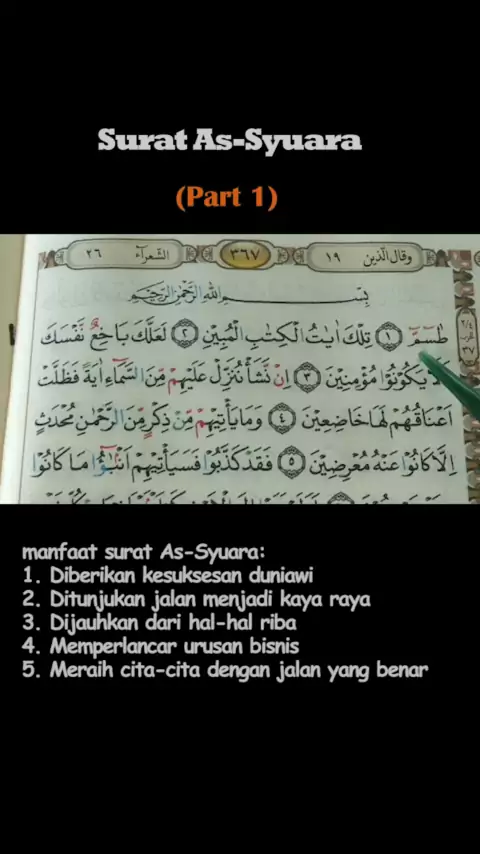 Surat As-Syuara
(Part 1)
وقال الذين ١٩ ٣٦٧ الشعرآء ٢٦
بِسْمِ اللّٰهِ الرَّحْمٰنِ الرَّحِيْمِ
طٰسۤمّۤ ١ تِلْكَ اٰيٰتُ الْكِتٰبِ الْمُبِيْنِ ٢ لَعَلَّكَ بَاخِعٌ نَّفْسَكَ
اَلَّا يَكُوْنُوْا مُؤْمِنِيْنَ ٣ اِنْ نَّشَأْ نُنَزِّلْ عَلَيْهِمْ مِّنَ السَّمَاۤءِ اٰيَةً فَظَلَّتْ
اَعْنَاقُهُمْ لَهَا خَاضِعِيْنَ ٤ وَمَا يَأْتِيْهِمْ مِّنْ ذِكْرٍ مِّنَ الرَّحْمٰنِ مُحْدَثٍ
اِلَّا كَانُوْا عَنْهُ مُعْرِضِيْنَ ٥ فَقَدْ كَذَّبُوْا فَسَيَأْتِيْهِمْ اَنْۢبٰۤؤُا مَا كَانُوْا
manfaat surat As-Syuara:
1. Diberikan kesuksesan duniawi
2. Ditunjukan jalan menjadi kaya raya
3. Dijauhkan dari hal-hal riba
4. Memperlancar urusan bisnis
5. Meraih cita-cita dengan jalan yang benar